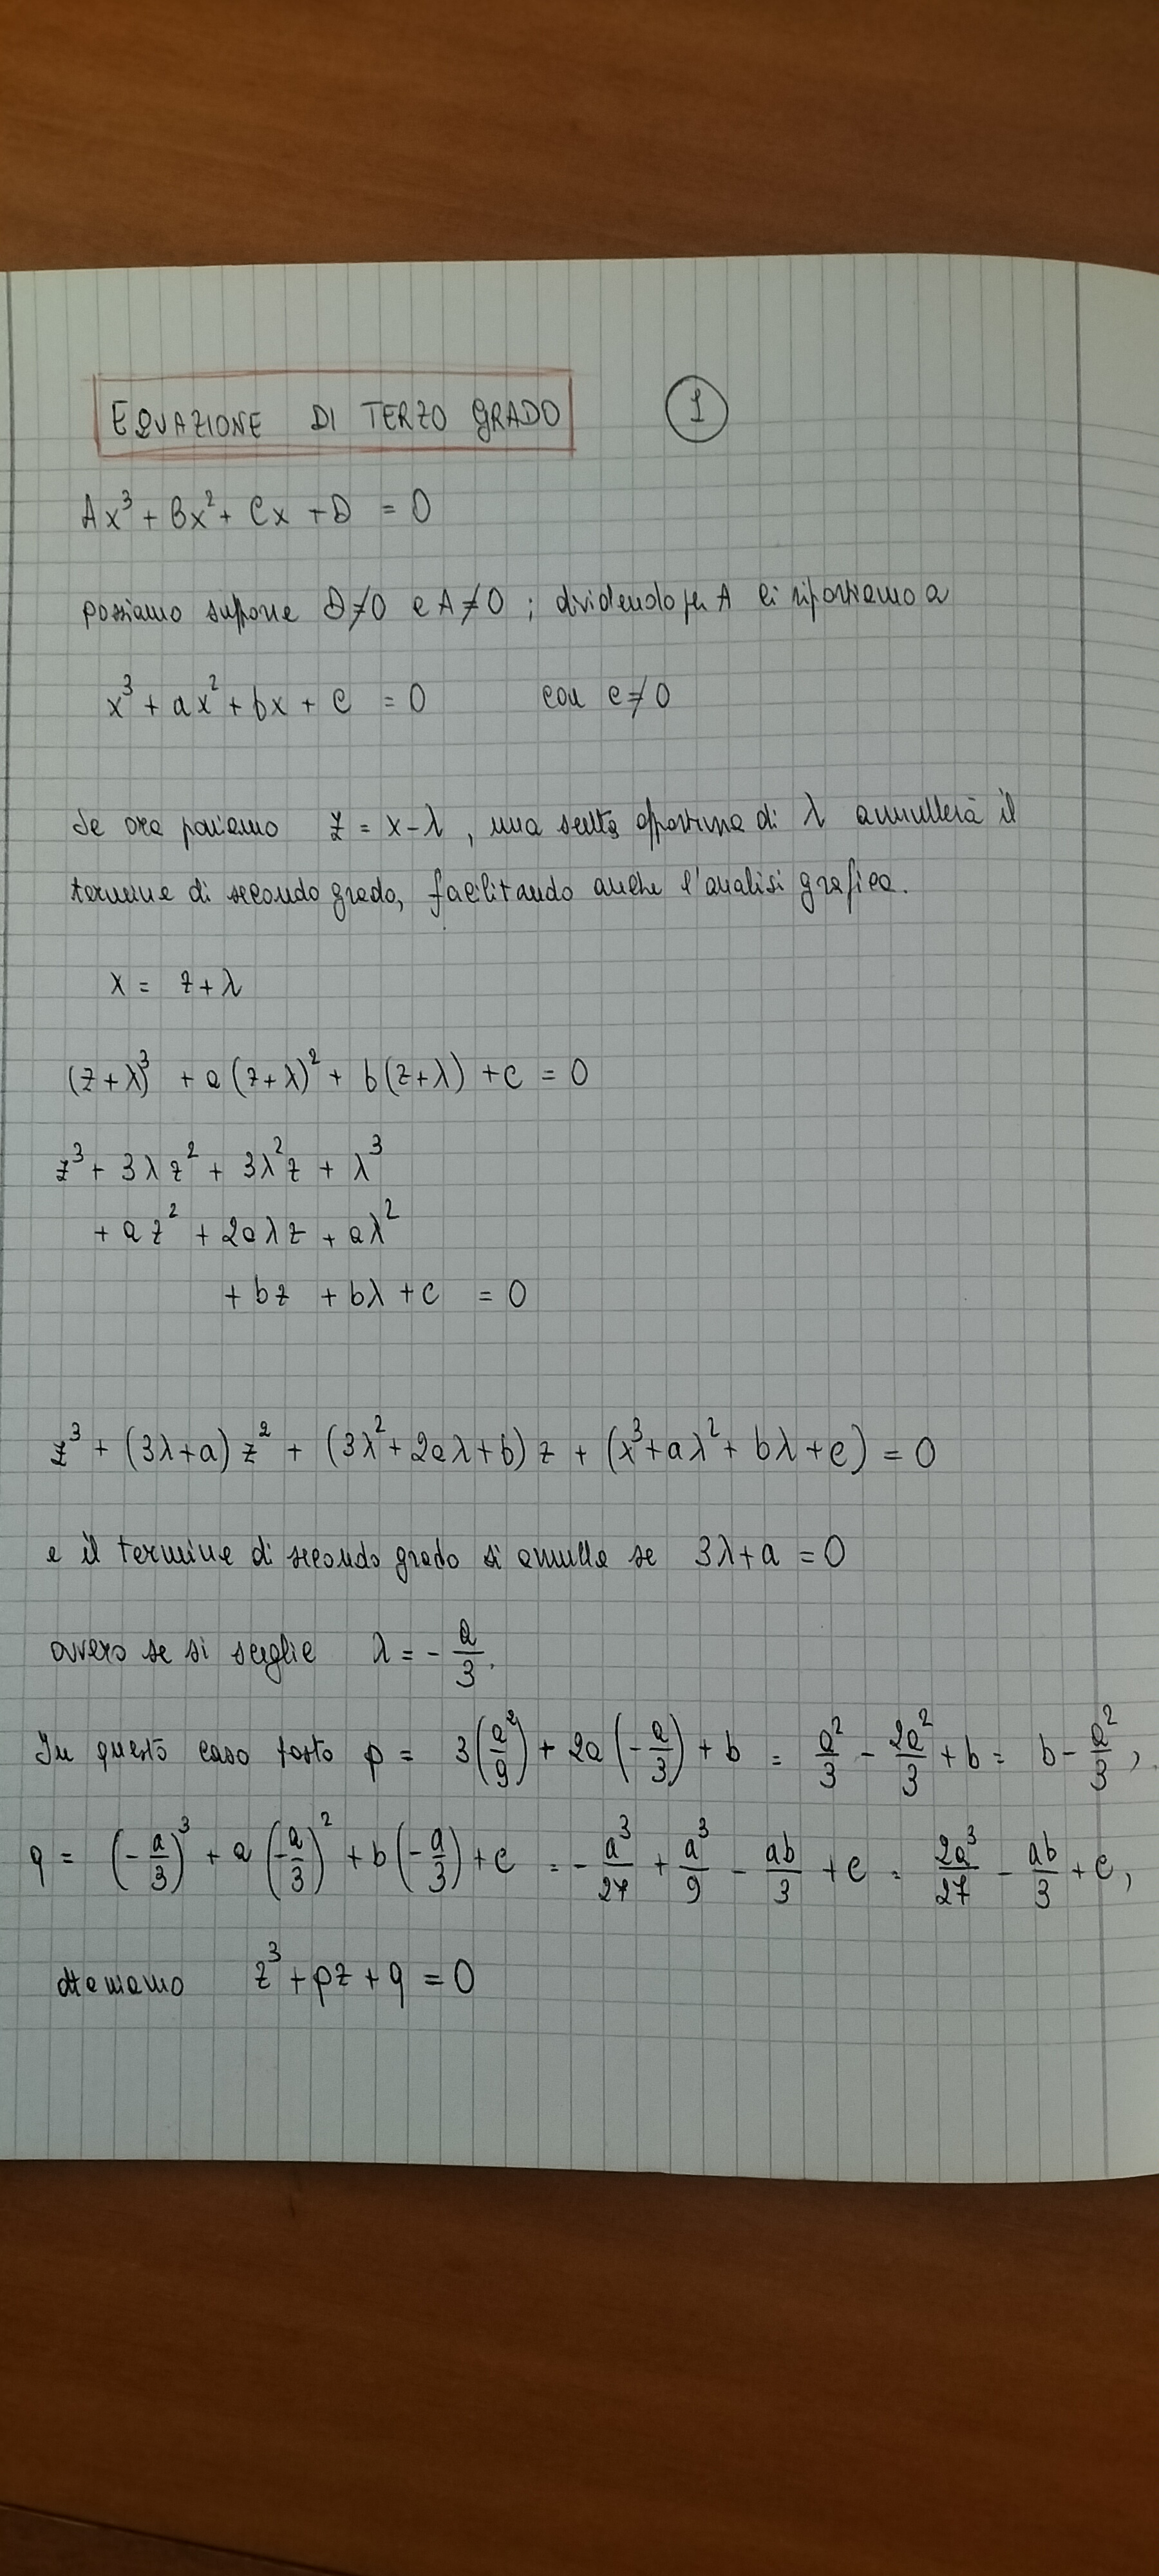 EQUAZIONE DI TERZO GRADO 1
Ax³ + Bx² + Cx + D = 0
possiamo supporre D≠0 e A≠0 ; dividendo per A ci riportiamo a
x³ + ax² + bx + c = 0 con c≠0
Se ora poniamo z = x-λ , una scelta opportuna di λ annullerà il
termine di secondo grado, facilitando anche l'analisi grafica.
x = z+λ
(z+λ)³ + a(z+λ)² + b(z+λ) + c = 0
z³ + 3λz² + 3λ²z + λ³
+ az² + 2aλz + aλ²
+ bz + bλ + c = 0
z³ + (3λ+a) z² + (3λ²+2aλ+b) z + (x³+aλ²+bλ+c) = 0
e il termine di secondo grado si annulla se 3λ+a = 0
ovvero se si sceglie λ = - a/3.
In questo caso posto p = 3(a²/9) + 2a(-a/3) + b = a²/3 - 2a²/3 + b = b - a²/3 ,
q = (-a/3)³ + a(-a/3)² + b(-a/3) + c = - a³/27 + a³/9 - ab/3 + c = 2a³/27 - ab/3 + c ,
otteniamo z³ + pz + q = 0